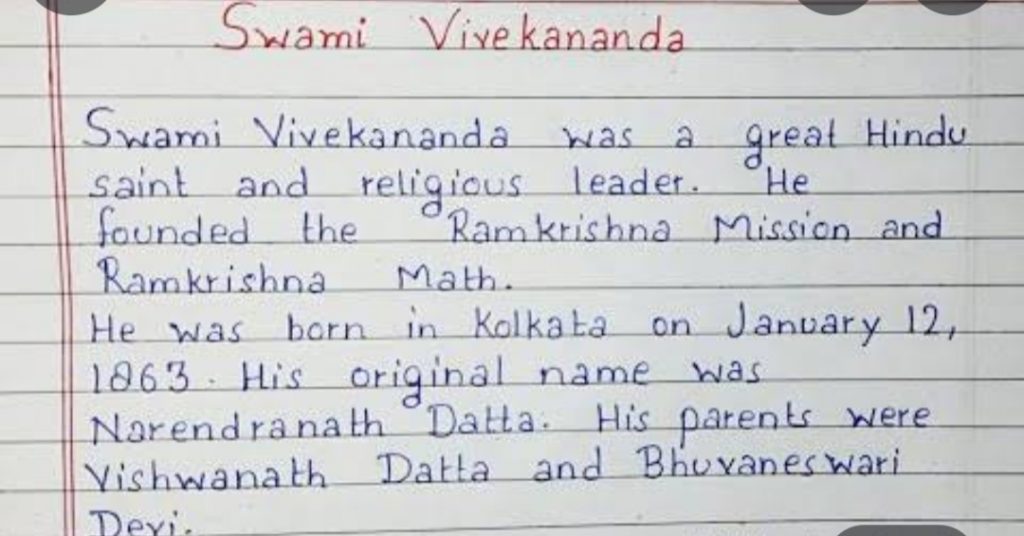 Swami Vivekananda
Swami Vivekananda was a great Hindu
saint and religious leader. He
founded the Ramkrishna Mission and
Ramkrishna Math.
He was born in Kolkata on January 12,
1863. His original name was
Narendranath Datta. His parents were
Vishwanath Datta and Bhuvaneswari
Devi.